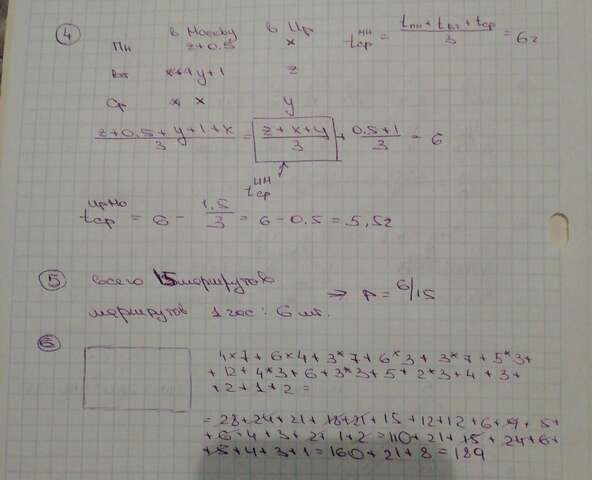 ④ в Москву в Ир
Пн z+0.5 x t_ср^ИМ = (t_пн + t_вт + t_ср)/3 = 6г
Вт y+1 z
Ср x y
(z+0.5+y+1+x)/3 = (z+x+y)/3 + (0.5+1)/3 = 6
t_ср
t_ср = 6 - 1.5/3 = 6 - 0.5 = 5,5г
⑤ всего 15 маршрутов
маршрутов 1 час: 6 шт. => p = 6/15
⑥ 4*7 + 6*4 + 3*7 + 6*3 + 3*7 + 5*3 +
+ 12 + 4*3 + 6 + 3*3 + 5 + 2*3 + 4 + 3 +
+ 2 + 1 + 2 =
= 28 + 24 + 21 + 18 + 21 + 15 + 12 + 12 + 6 + 9 + 5 +
+ 6 + 4 + 3 + 2 + 1 + 2 = 110 + 21 + 15 + 24 + 6 +
+ 5 + 4 + 3 + 1 = 160 + 21 + 8 = 189